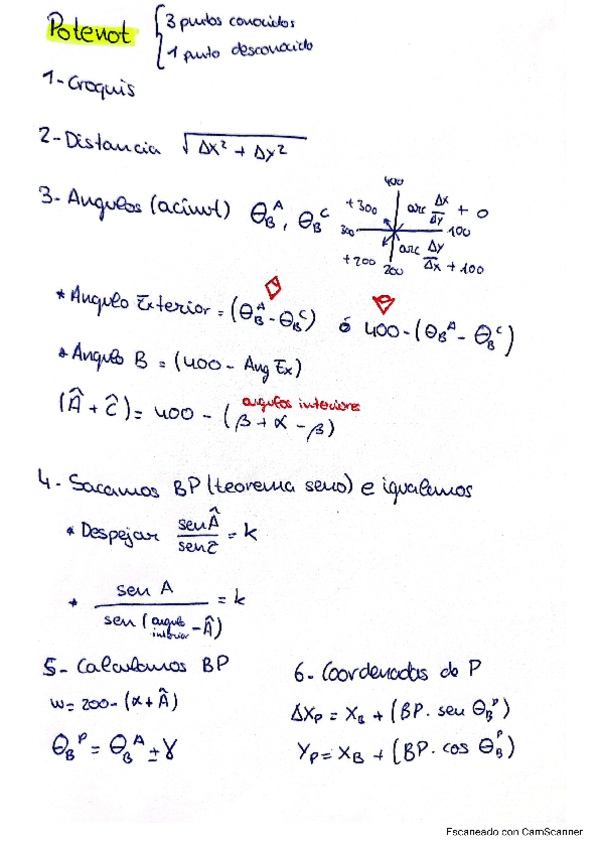 Potenot { 3 puntos conocidos
1 punto desconocido
1-Croquis
2-Distancia √ΔX² + Δy²
3- Angulos (acimut) θ_B^A, θ_B^C
400
+300 arc Δx/Δy + 0
300 100
arc Δy/Δx + 100
+200 200
* Angulo Exterior = (θ_B^A - θ_B^C) ó 400-(θ_B^A - θ_B^C)
* Angulo B = (400 - Ang Ex)
angulos interiores
(Â + Ĉ) = 400 - (β + α - β)
4- Sacamos BP (teorema seno) e igualamos
* Despejar sen Â / sen Ĉ = k
* sen A / sen (angulo interior - Â) = k
5- Calculamos BP
w = 200 - (α + Â)
θ_B^P = θ_B^A ± γ
6- Coordenadas de P
ΔX_P = X_B + (BP · sen θ_B^P)
Y_P = X_B + (BP · cos θ_B^P)
Escaneado con CamScanner